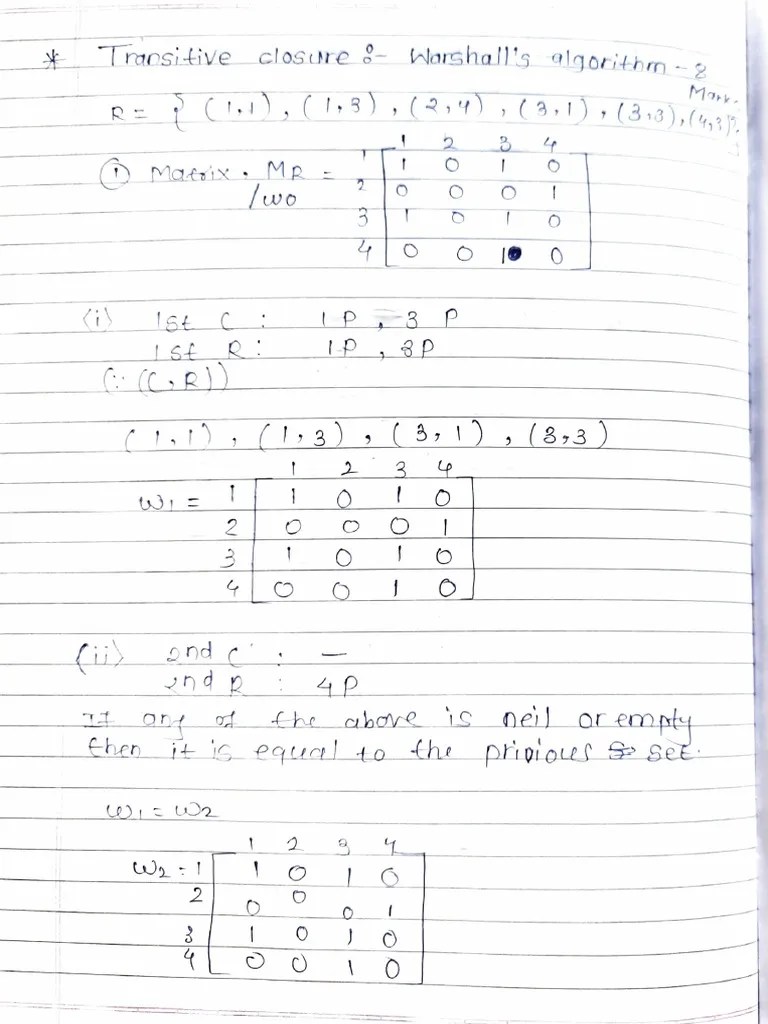 * Transitive closure :- Warshall's algorithm - 8
Mark.
R = { (1,1), (1,3), (2,4), (3,1), (3,3), (4,3)}
1 2 3 4
① Matrix . MR = 1 1 0 1 0
/wo 2 0 0 0 1
3 1 0 1 0
4 0 0 1 0
(i) 1st C : 1P , 3 P
1st R : 1P , 3P
(∵ (C, R))
(1,1), (1,3), (3,1), (3,3)
1 2 3 4
W1 = 1 1 0 1 0
2 0 0 0 1
3 1 0 1 0
4 0 0 1 0
(ii) 2nd C : —
2nd R : 4P
If any of the above is neil or empty
then it is equal to the privious set.
W1 = W2
1 2 3 4
W2 = 1 1 0 1 0
2 0 0 0 1
3 1 0 1 0
4 0 0 1 0